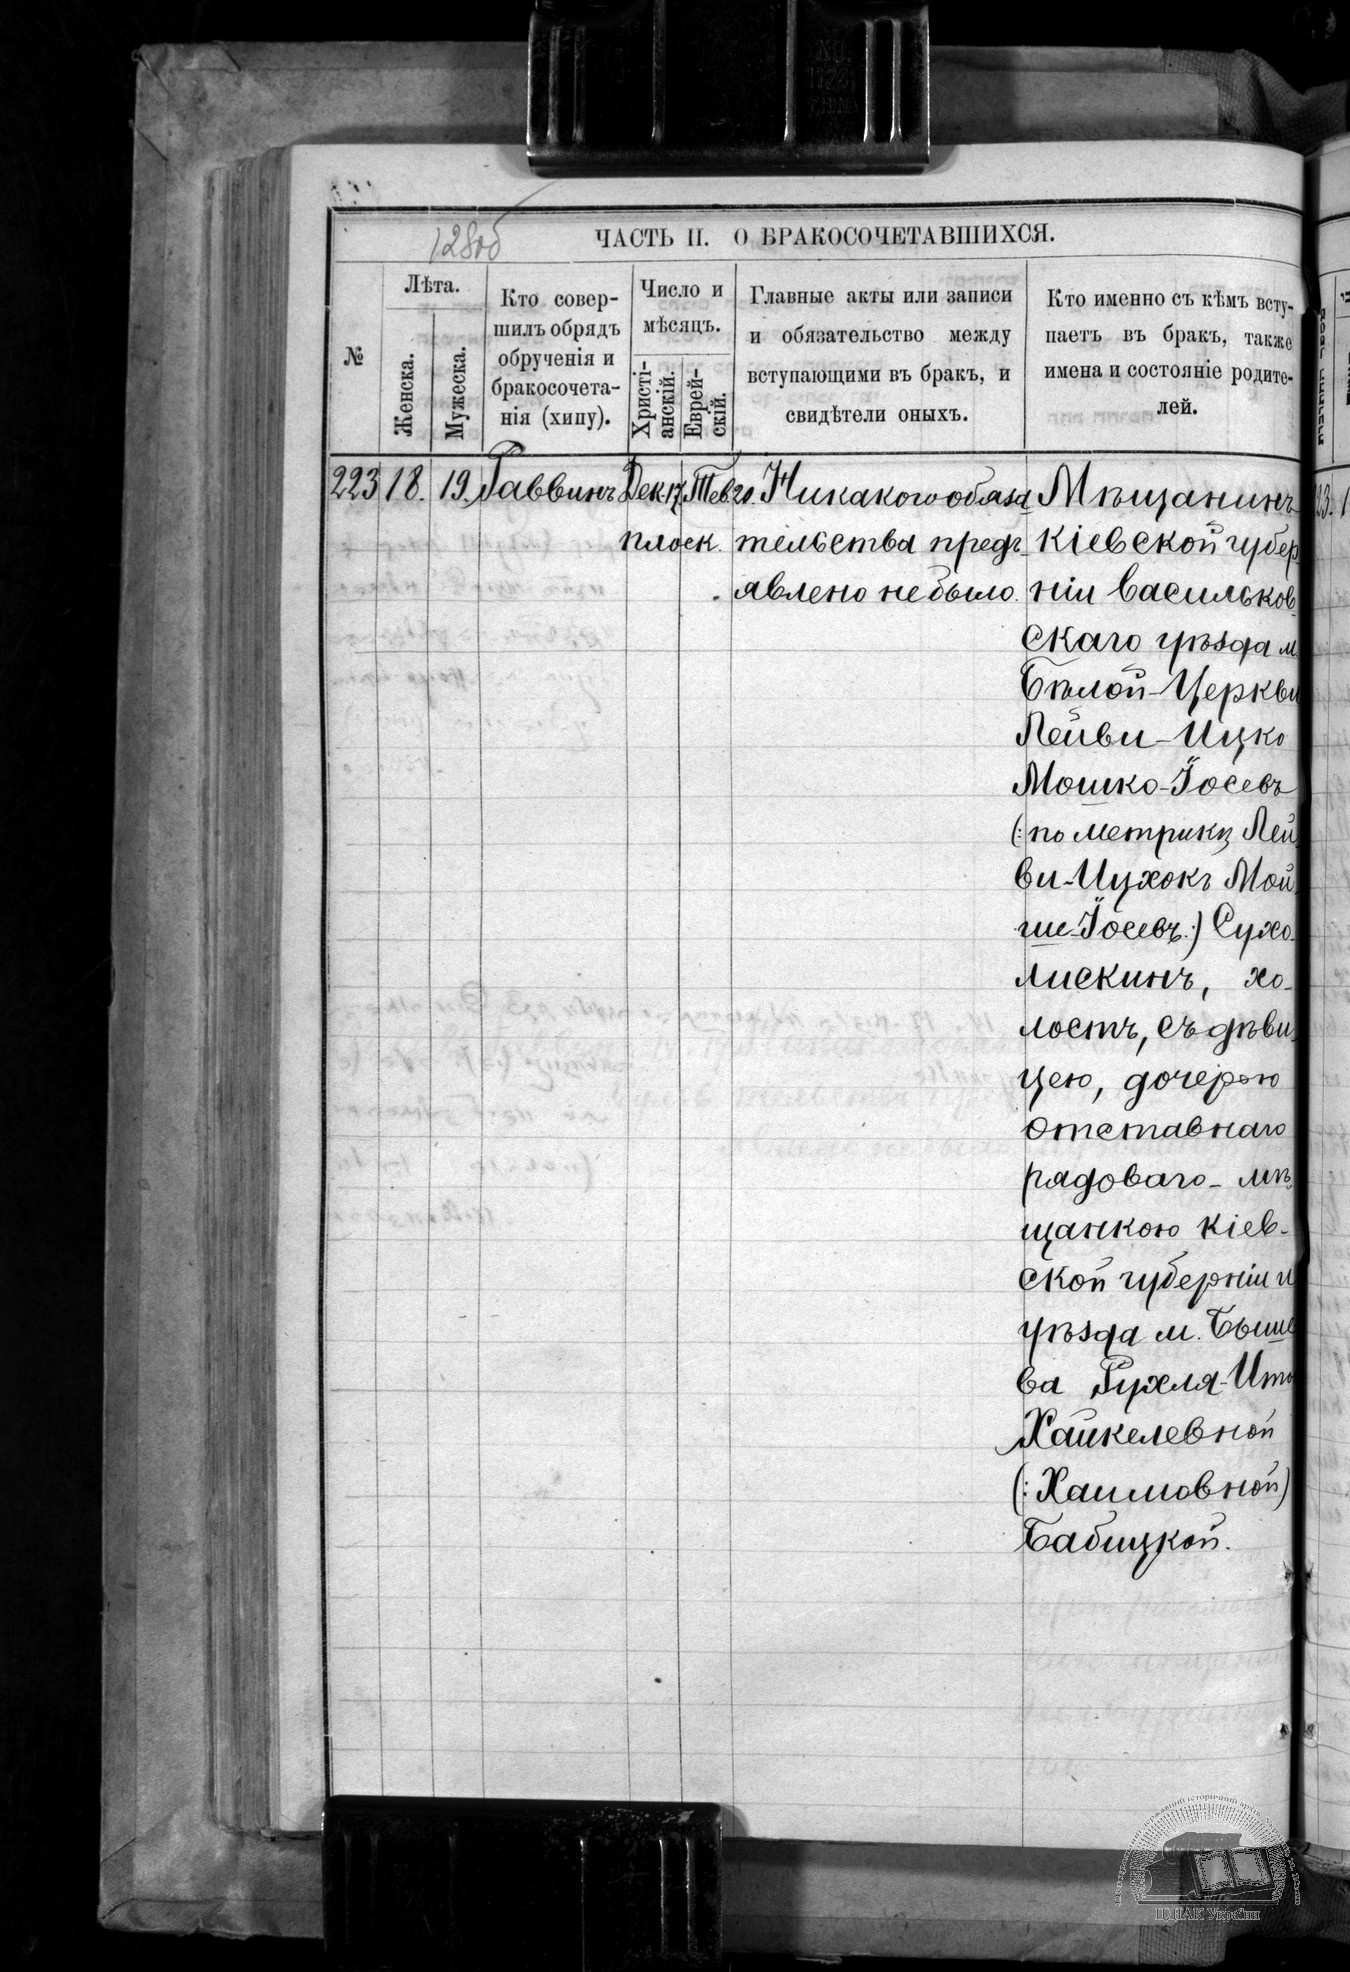 128об
ЧАСТЬ II. О БРАКОСОЧЕТАВШИХСЯ.
№
Лѣта.
Женска.
Мужеска.
Кто совер-
шилъ обрядъ
обрученія и
бракосочета-
нія (хипу).
Число и
мѣсяцъ.
Христі-
анскій.
Еврей-
скій.
Главные акты или записи
и обязательство между
вступающими въ бракъ, и
свидѣтели оныхъ.
Кто именно съ кѣмъ всту-
паетъ въ бракъ, также
имена и состояніе родите-
лей.
223 18. 19. Раввинъ Дек. 17 Тев 20. Никакого обяза Мѣщанинъ
плоск. тельства предъ- Кіевской губер
явлено не было. ніи Васильков
скаго уѣзда м.
Бѣлой-Церкви
Лейви-Ицко
Мошко-Іосевъ
(: по метрикѣ Лей
ви-Ицхокъ Мой
ше-Іосевъ:) Сухо-
лискинъ, хо-
лостъ, съ дѣви
цею, дочерью
отставнаго
рядоваго - мѣ
щанкою Кіев-
ской губерніи и
уѣзда м. Быше
ва Рухля-Ита
Хайкелевной
(: Хаимовной)
Бабицкой.
ЦДІАК України